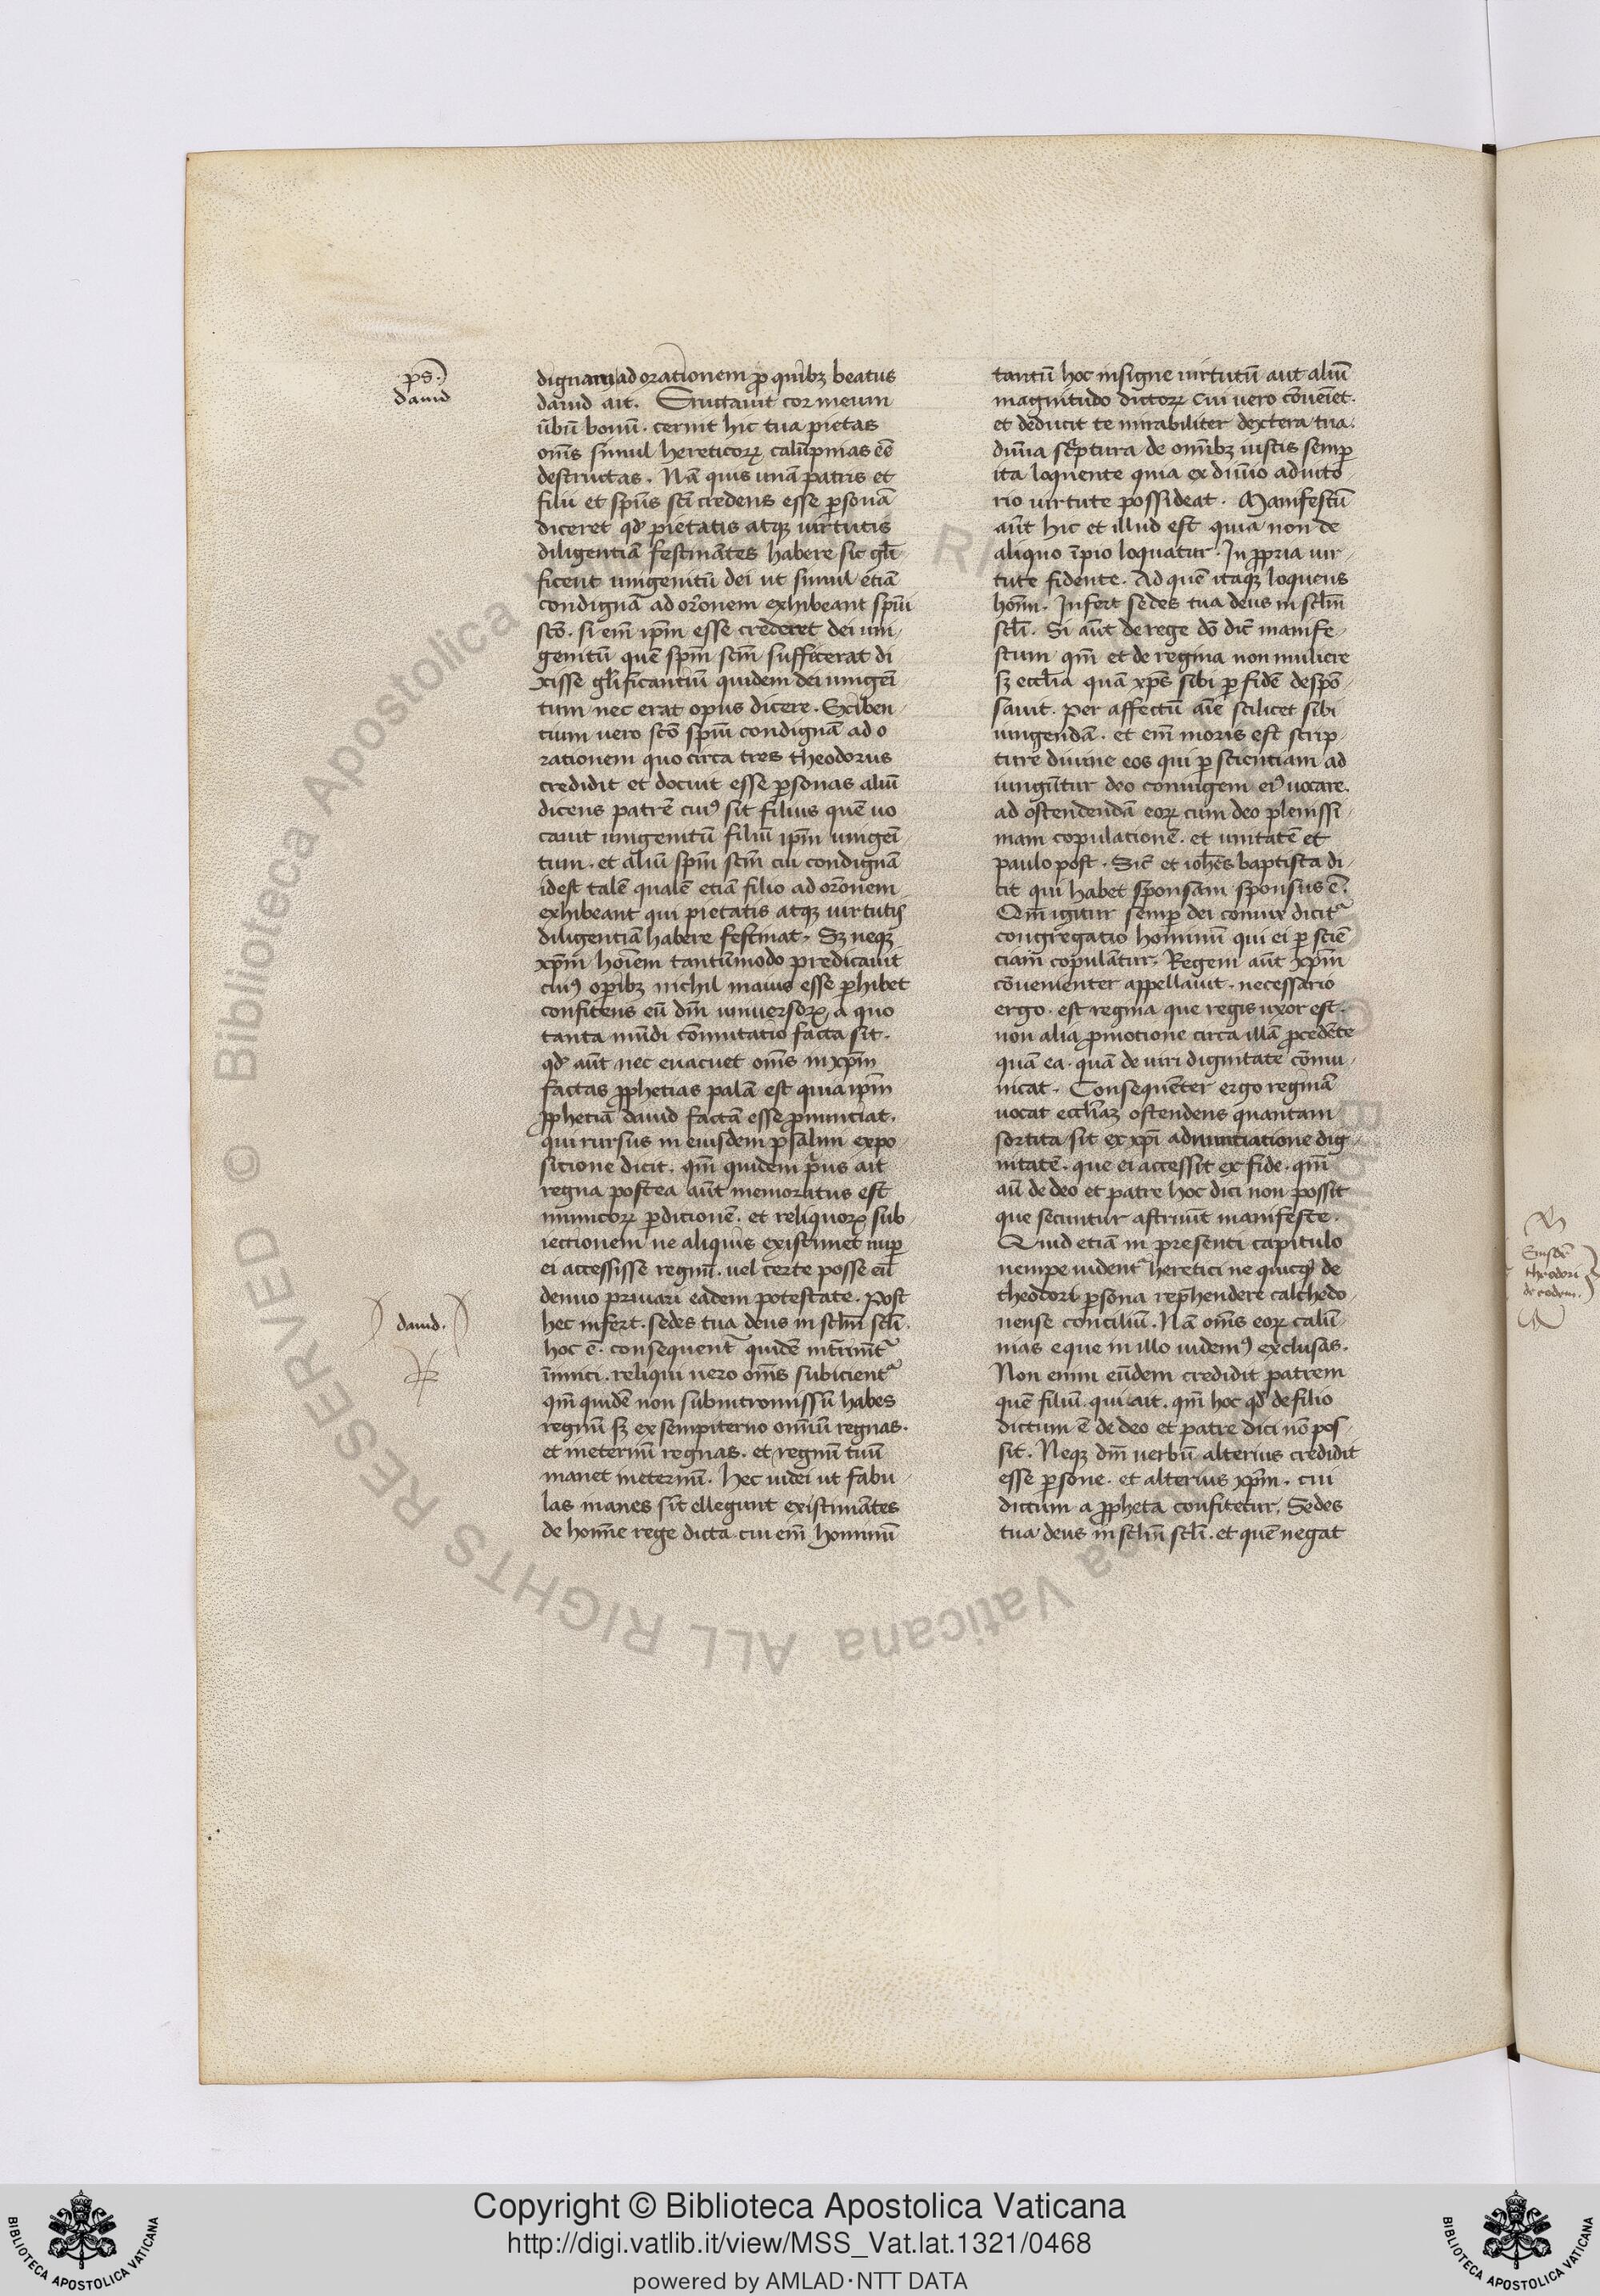 ps.
dauid
dignam ad orationem ꝓ quibꝫ beatus
dauid ait. Eructauit cor meum
ūbū bonū. cernit hic tua pietas
om̄s simul hereticoꝝ calūpnias eē̄
destructas. Nā quis unā patris et
filii et sp̄us sc̄i credens esse ꝑsonā
diceret qd̓ pietatis atqꝫ uirtutis
diligentiā festinātes habere sic gl̄i
ficent unigenitū dei ut simul etiā
condignā ad or̄onem exhibeant sp̄ui
sc̄o. si em̄ ip̄m esse crederet dei uni
genitū quē sp̄m sc̄m suffecerat di
xisse gl̄ificantiū quidem dei unigēi
tum nec erat opus dicere. Exiben
tium uero sc̄o sp̄ui condignā ad o
rationem quo circa tres theodorus
credidit et docuit esse ꝑsonas aliū
dicens patrē cuiꝰ sit filius quē uo
cauit unigenitū filiū ip̄m unigēi
tum. et aliū sp̄m sc̄m cui condignā
idest talē qualē etiā filio ad or̄onem
exhibeant qui pietatis atqꝫ uirtutis
diligentiā habere festinat. Sꝫ neqꝫ
xp̄m hoīem tantūmodo predicauit
cuiꝰ oꝑibꝫ nichil maius esse ꝑhibet
confitens eū dm̄ uniuersoꝝ a quo
tanta mūdi cōmutatio facta sit.
qd̓ aūt nec euacuet om̄s in xp̄m
factas ꝓphetias palā est quia ip̄m
ꝓphetiā dauid factā esse ꝓnunciat.
qui rursus in eiusdem psalmi expo
sitione dicit. qm̄ quidem prius ait
regna postea aūt memoratus est
inimicoꝝ ꝑditionē. et reliquoꝝ sub
iectionem ne aliquis existimet nuꝑ
ei accessisse regnū. uel certe posse eū
denuo priuari eadem potestate. Post
dauid.
hec infert. sedes tua deus in sclm̄ scl̄i.
hoc ē. consequent᷑ quidē intrimūt᷑
īimici. reliqui uero om̄s subicient᷑
qm̄ quidē non subintromissū habes
regnū sꝫ ex sempiterno om̄iū regnas.
et in eternū regnas. et regnū tuū
manet in eternū. hec iudei ut fabu
las inanes sīt ellegunt existimātes
de homīe rege dicta cui em̄ hominū
tantū hoc insigne uirtutū aut aliū
magnitudo dictoꝝ cui uero cōueīet.
et deducit te mirabiliter dextera tua.
diuīa scͥptura de om̄ibꝫ iustis semꝑ
ita loquente quia ex diuīo aduito
rio uirtute possideat. Manifestū
aūt hic et illud est quia non de
aliquo īpio loquatur. In ꝓpria uir
tute fidente. Ad quē itaqꝫ loquens
hom̄. Infert sedes tua deus in sclm̄
scl̄i. Si aūt de rege dō dic̄ manife
stum qm̄ et de regina non muliere
sꝫ eccl̄ia quā xp̄s sibi ꝑ fidē despō
sauit. per affectū aīe scilicet sibi
iungendā. et em̄ moris est scrip
ture diuine eos qui ꝑ scientiam ad
iungūtur deo coniugem eiꝰ uocare.
ad ostendendā eoꝝ cum deo plenissi
mam copulationē. et unitatē et
paulo post. Sic̄ et ioh̄es baptista di
cit qui habet sponsam sponsus ē.
Qm̄ igitur semꝑ dei coniux dicit᷑
congregatio hominū qui ei ꝑ sciē
ciam copulātur. Regem aūt xp̄m
cōuenienter appellauit. necessario
ergo. est regina que regis uxor est.
non alia ꝓmotione circa illā ꝓcedēte
quā ea. quā de uiri dignitate cōmu
nicat. Consequēter ergo reginā
uocat eccl̄iaꝫ ostendens quantam
sortita sit ex xp̄i adnuntiatione dig
nitatē. que ei accessit ex fide. qm̄
aū de deo et patre hoc dici non possit
que secuntur astruūt manifeste.
Quid etiā in presenti capitulo
nempe uident᷑ heretici ne quicqꝫ de
theodori ꝑsona rep̄hendere calchedo
nense conciliū. Nā om̄s eoꝝ calū
nias eque in illo uidemꝰ exclusas.
Non enim eūdem credidit patrem
quē filiū. qui ait. qm̄ hoc qd̓ de filio
dictum ē de deo et patre dici nō pos
sit. Neqꝫ dm̄ uerbū alterius credidit
esse ꝑsone. et alterius xp̄m. cui
dictum a ꝓpheta confitetur. Sedes
tua deus in sclm̄ scl̄i. et quē negat
Eiusdē
theodori
de eodem.
© Biblioteca Apostolica Vaticana ALL RIGHTS RESERVED
Copyright © Biblioteca Apostolica Vaticana
http://digi.vatlib.it/view/MSS_Vat.lat.1321/0468
powered by AMLAD·NTT DATA
BIBLIOTECA APOSTOLICA VATICANA
BIBLIOTECA APOSTOLICA VATICANA